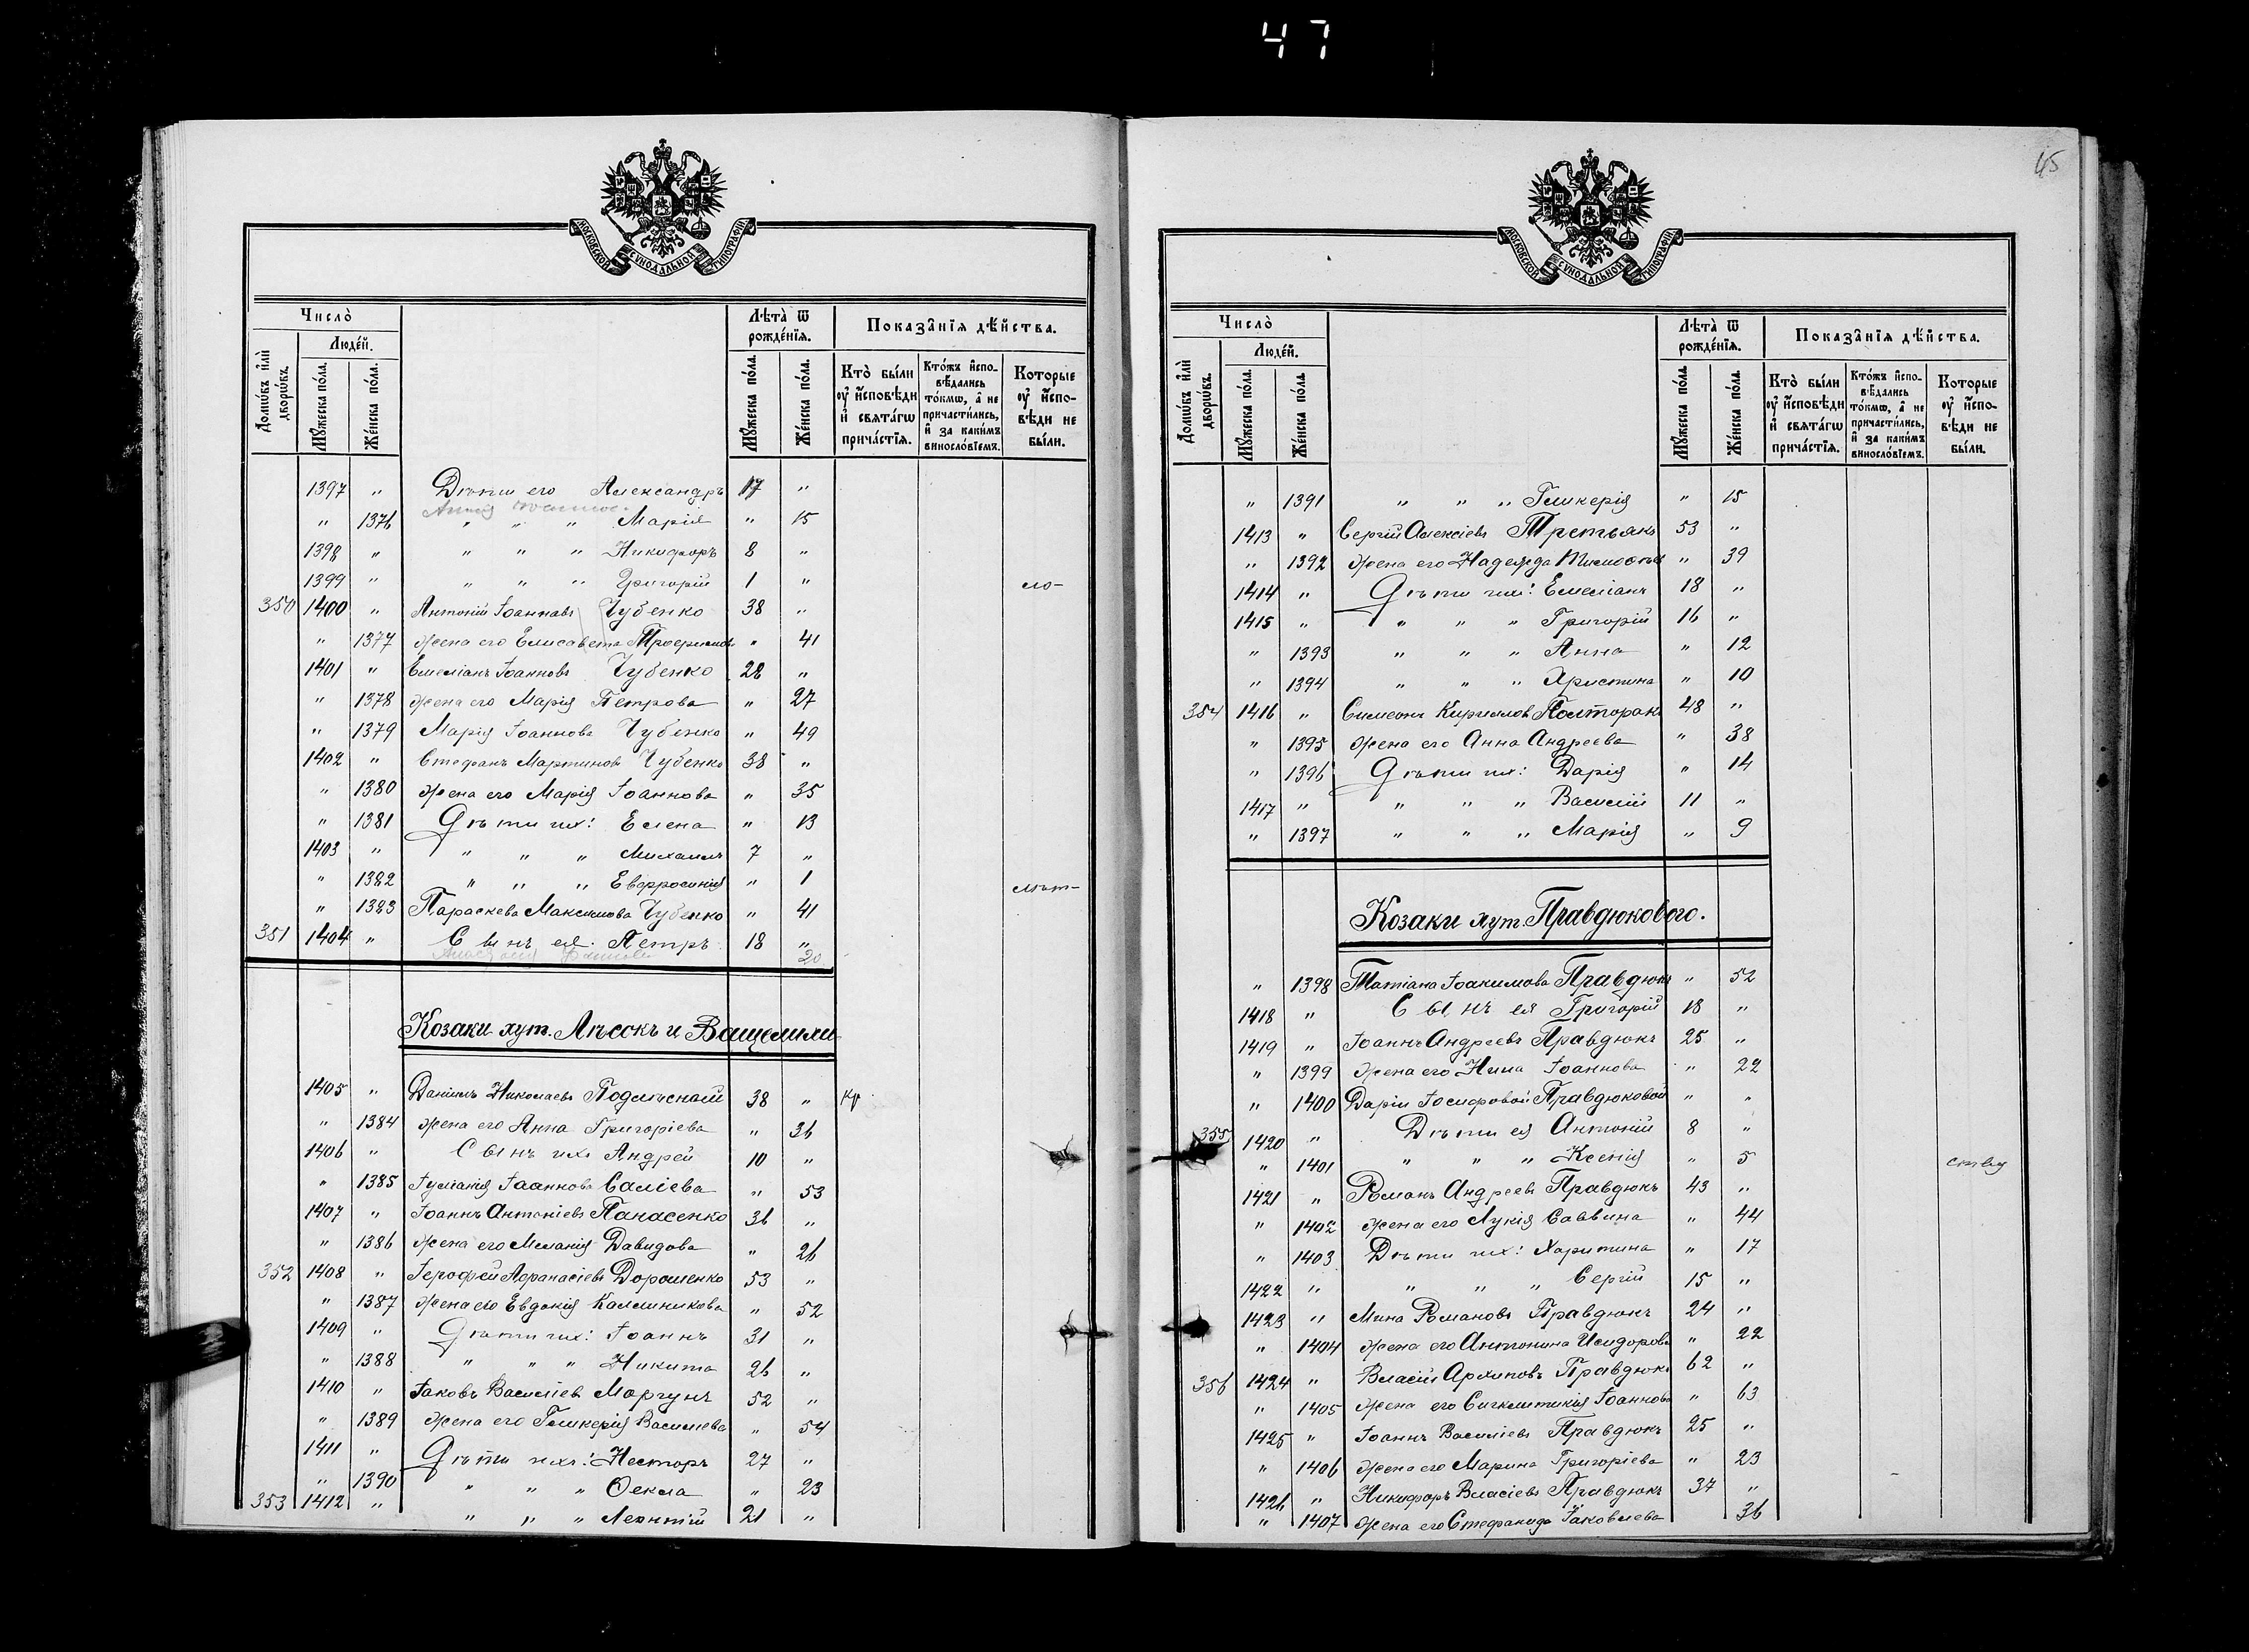 47
МОСКОВСКОЙ СѴНОДАЛЬНОЙ ТИПОГРАФІИ
Число̀
Людє́й.
Домѡ́въ и҆лѝ дворѡ́въ.
Мꙋ́жеска по́ла.
Же́нска по́ла.
Лѣ́та ѿ рожде́нїѧ.
Мꙋ́жеска по́ла.
Же́нска по́ла.
Показа̑нїѧ дѣ́йства.
Кто̀ бы́ли ᲂу҆ и҆́сповѣди и҆ свѧта́гѡ прича́стїѧ.
Кто́жъ и҆спо-вѣ́дались то́кмѡ, а҆ не причасти́лись, и҆ за каки́мъ винослові́емъ.
Которые ᲂу҆ и҆́спо-вѣди не бы́ли.
1397 " Дѣти его Александръ 17 "
" 1376 " " " Марія " 15
1398 " " " " Никифоръ 8 "
1399 " " " " Григорій 1 " ло-
350 1400 " Антоній Іоанновъ Чубенко 38 "
" 1377 Жена его Елисавета Трофимова " 41
1401 " Емеліанъ Іоанновъ Чубенко 28 "
" 1378 Жена его Марія Петрова " 27
" 1379 Марія Іоаннова Чубенко " 49
1402 " Стефанъ Мартиновъ Чубенко 38 "
" 1380 Жена его Марія Іоаннова " 35
" 1381 Дѣти ихъ: Елена " 13
1403 " " " " Михаилъ 7 "
" 1382 " " " Евфросинія " 1 лѣт-
" 1383 Параскева Максимова Чубенко " 41
351 1404 " Сынъ ея Петръ 18 "
20
Козаки хут. Лѣсокъ и Ващемихи
1405 " Даніилъ Николаевъ Подлѣсный 38 " кр
" 1384 Жена его Анна Григоріева " 36
1406 " Сынъ ихъ Андрей 10 "
" 1385 Іуліанія Іоаннова Саліева " 53
1407 " Іоаннъ Антоніевъ Панасенко 36 "
" 1386 Жена его Меланія Давидова " 26
352 1408 " Іерофей Афанасіевъ Дорошенко 53 "
" 1387 Жена его Евдокія Каллиникова " 52
1409 " Дѣти ихъ: Іоаннъ 31 "
" 1388 " " " Никита 26 "
1410 " Іаковъ Василіевъ Моргунъ 52 "
" 1389 Жена его Гликерія Василіева " 54
1411 " Дѣти ихъ: Несторъ 27 "
" 1390 " " " Ѳекла " 23
353 1412 " " " " Леонтій 21 "
45
МОСКОВСКОЙ СѴНОДАЛЬНОЙ ТИПОГРАФІИ
Число̀
Людє́й.
Домѡ́въ и҆лѝ дворѡ́въ.
Мꙋ́жеска по́ла.
Же́нска по́ла.
Лѣ́та ѿ рожде́нїѧ.
Мꙋ́жеска по́ла.
Же́нска по́ла.
Показа̑нїѧ дѣ́йства.
Кто̀ бы́ли ᲂу҆ и҆́сповѣди и҆ свѧта́гѡ прича́стїѧ.
Кто́жъ и҆спо-вѣ́дались то́кмѡ, а҆ не причасти́лись, и҆ за каки́мъ винослові́емъ.
Которые ᲂу҆ и҆́спо-вѣди не бы́ли.
" 1391 " " " Гликерія " 15
1413 " Сергій Алексіевъ Третьякъ 53 "
" 1392 Жена его Надежда " 39
1414 " Дѣти ихъ: Емеліанъ 18 "
1415 " " " " Григорій 16 "
" 1393 " " " Анна " 12
" 1394 " " " Христина " 10
354 1416 " Симеонъ Кирилловъ Полторакъ 48 "
" 1395 Жена его Анна Андреева " 38
" 1396 Дѣти ихъ: Дарія " 14
1417 " " " " Василій 11 "
" 1397 " " " Марія " 9
Козаки хут. Правдюкового.
" 1398 Татіана Іоакимова Правдюкъ " 52
1418 " Сынъ ея Григорій 18 "
1419 " Іоаннъ Андреевъ Правдюкъ 25 "
" 1399 Жена его Нина Іоаннова " 22
" 1400 Даріи Іосифовой Правдюковой " "
355 1420 " Дѣти ея Антоній 8 "
" 1401 " " " Ксенія " 5
1421 " Романъ Андреевъ Правдюкъ 43 "
" 1402 Жена его Лукія Саввина " 44
" 1403 Дѣти ихъ: Харитина " 17
1422 " " " " Сергій 15 "
1423 " Мина Романовъ Правдюкъ 24 "
" 1404 Жена его Антонина Исидорова " 22
356 1424 " Власій Архиповъ Правдюкъ 62 "
" 1405 Жена его Сигклитикія Іоаннова " 63
1425 " Іоаннъ Василіевъ Правдюкъ 25 "
" 1406 Жена его Марина Григоріева " 23
1426 " Никифоръ Власіевъ Правдюкъ 37 "
" 1407 Жена его Стефанида Іаковлева 36